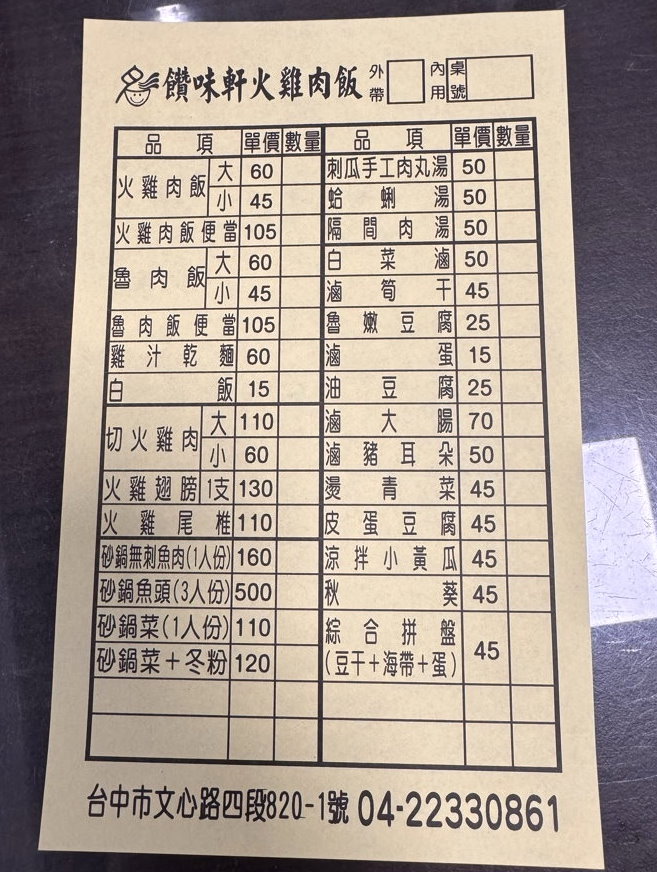 饡味軒火雞肉飯 外帶 內用 桌號
品項 單價 數量
火雞肉飯 大 60
小 45
火雞肉飯便當 105
魯肉飯 大 60
小 45
魯肉飯便當 105
雞汁乾麵 60
白飯 15
切火雞肉 大 110
小 60
火雞翅膀 1支 130
火雞尾椎 110
砂鍋無刺魚肉(1人份) 160
砂鍋魚頭(3人份) 500
砂鍋菜(1人份) 110
砂鍋菜+冬粉 120
品項 單價 數量
刺瓜手工肉丸湯 50
蛤蜊湯 50
隔間肉湯 50
白菜滷 50
滷筍干 45
魯嫩豆腐 25
滷蛋 15
油豆腐 25
滷大腸 70
滷豬耳朵 50
燙青菜 45
皮蛋豆腐 45
涼拌小黃瓜 45
秋葵 45
綜合拼盤
(豆干+海帶+蛋) 45
台中市文心路四段820-1號 04-22330861